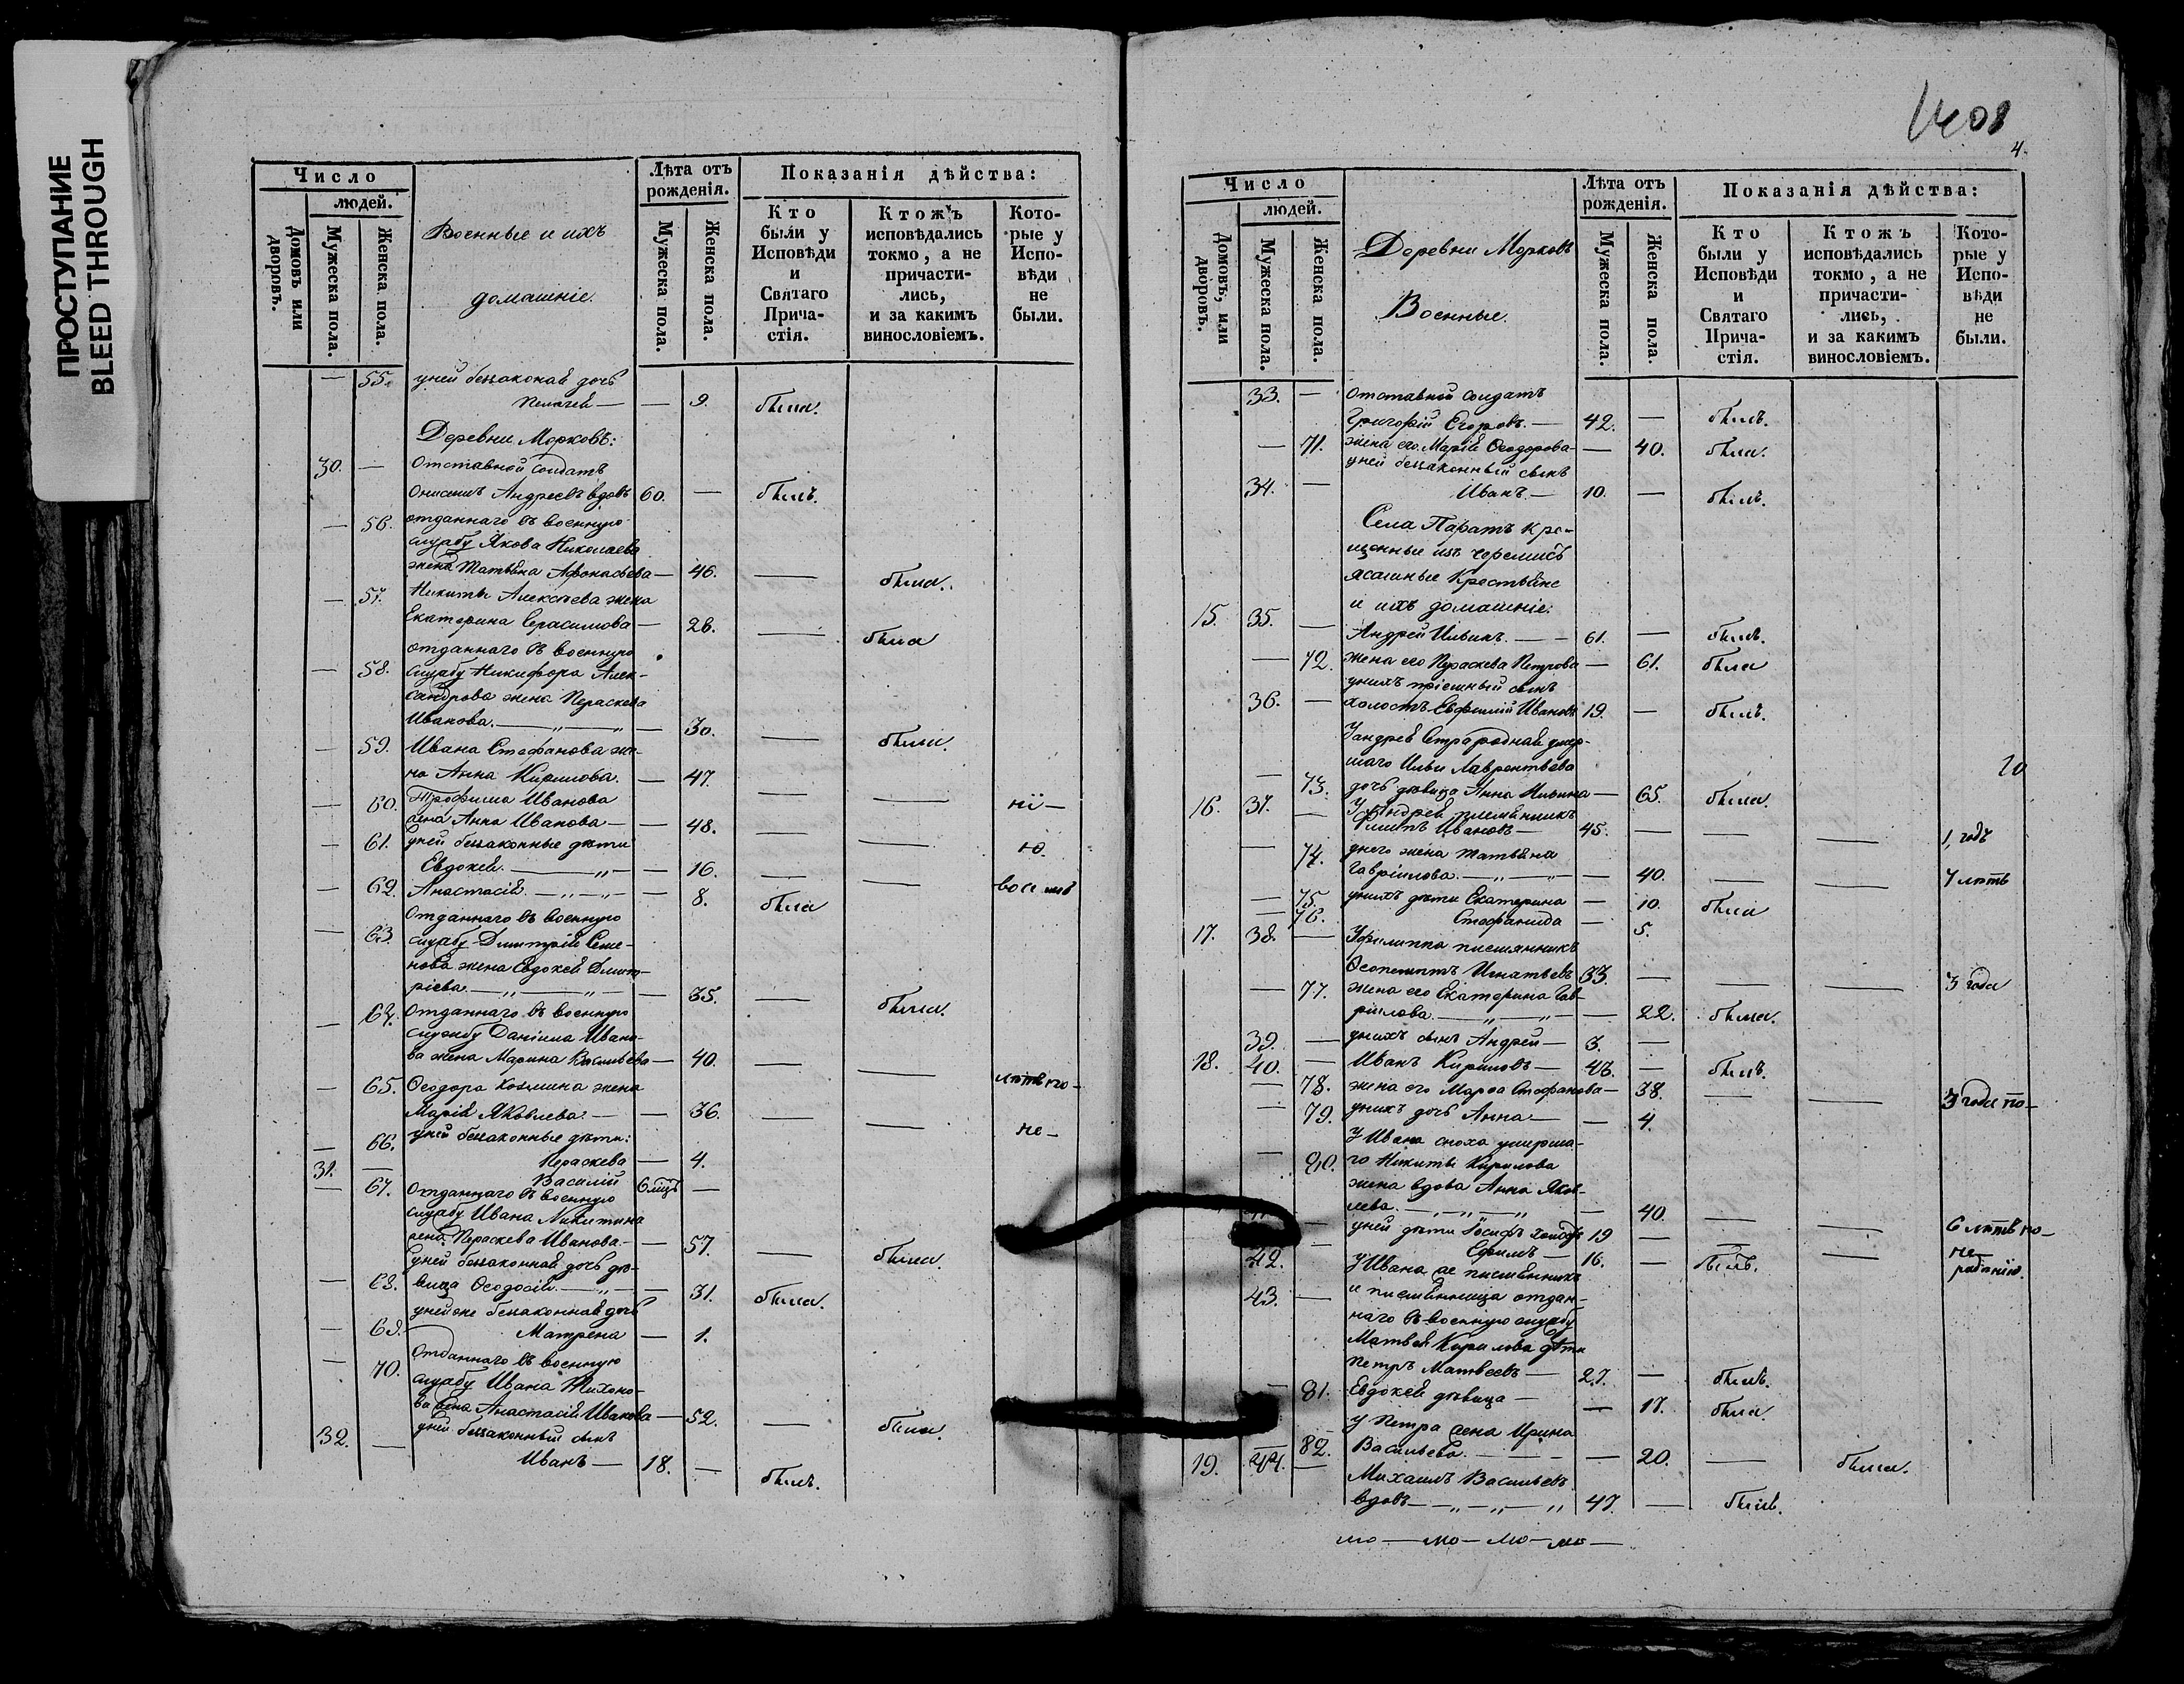 ПРОСТУПАНИЕ
BLEED THROUGH
Число
людей.
Домовъ или дворовъ.
Мужеска пола.
Женска пола.
Военные и ихъ
домашніе.
Лѣта отъ рожденія.
Мужеска пола.
Женска пола.
Показанія дѣйства:
Кто были у Исповѣди и Святаго Прича-стія.
Ктожъ исповѣдались токмо, а не причасти-лись, и за какимъ винословіемъ.
Кото-рые у Испо-вѣди не были.
— 55. уней беззаконая дочь
Пелагея — — 9. была.
Деревни Морковъ:
30. — Отставной солдатъ
Андреевъ вдовъ 60. — былъ.
— 56. отданнаго въ военную
службу Якова Николаева
жена Татьяна Афонасьева — 46. — была.
— 57. Никиты Алексѣева жена
Екатерина Герасимова — 26. — была
отданнаго въ военную
— 58. службу Никифора Алек-
сандрова жена Пераскева
Иванова. — „ — „ — 30. — была.
— 59. Ивана Стефанова же-
на Анна Кирилова. — 47. — — —
— 60. Трофима Иванова
жена Анна Иванова — — 48. — —
— 61. уней беззаконные дѣти
Евдокея. — „ — — 16. — —
— 62. Анастасія. — „ — „ — — 8. была
Отданнаго въ военную
— 63. службу Димитрія Семе-
нова жена Евдокея Димит-
ріева. — „ — „ — — 35. — была.
— 64. Отданнаго въ военную
службу Даніила Ивано-
ва жена Марина Васильева — 40. — —
— 65. Ѳеодора Козмина жена
Марія Яковлева. — — 36. — — не —
— 66. уней беззаконные дѣти:
Пераскева — — 4.
31. — Василій 6 мцъ —
— 67. Отданнаго въ военную
службу Ивана Никитина
жена Пераскева Иванова. — — 57. — была.
уней беззаконная дочь дѣ-
— 68. вица Ѳеодосія. — „ — — 31. была.
уней же беззаконная дочь
— 69. Матрена — — 1.
— 70. Отданнаго въ военную
службу Ивана Тихоно-
ва жена Анастасія Иванова — 52. — была.
32. — уней беззаконный сынъ
Иванъ — 18. — былъ.
1408
4.
Число
людей.
Домовъ, или дворовъ.
Мужеска пола.
Женска пола.
Деревни Морковъ
Военные.
Лѣта отъ рожденія.
Мужеска пола.
Женска пола.
Показанія дѣйства:
Кто были у Исповѣди и Святаго Прича-стія.
Ктожъ исповѣдались токмо, а не причасти-лись, и за какимъ винословіемъ.
Кото-рые у Испо-вѣди не были.
33. — Отставный солдатъ
Григорій Егоровъ. — 42. — былъ.
— 71. жена его Марія Ѳеодорова — — 40. была.
уней беззаконный сынъ
34. — Иванъ. — 10. — былъ.
Села Паратъ Кре-
щенные изъ черемисъ
ясашные Крестьяне
и ихъ домашніе:
15. 35. — Андрей Ильинъ. — — 61. — былъ.
— 72. жена его Пераскева Петрова — 61. была
унихъ пріемный сынъ
36. — холостъ Евфимій Ивановъ 19. — былъ.
У Андрея умер-
шаго Ильи Лаврентьева
— 73. дочь дѣвица Анна Ильина — 65. была.
16. 37. — У Андрея племянникъ
Филипъ Ивановъ — 45. — — — 1, годъ
— 74. унего жена Татьяна
Гавріилова. — „ — „ — — 40. — — 7 лѣтъ
— 75. унихъ дѣти Екатерина — 10. была
— 76. Стефанида — 5.
17. 38. — У Филиппа племянникъ
Ѳеопемптъ Игнатьевъ 33. — — — 3 года
— 77. жена его Екатерина Гав-
риилова. — „ — „ — — 22. была.
39. — унихъ сынъ Андрей — 3. —
18. 40. — Иванъ Кириловъ — — былъ.
— 78. жена его Марѳа Стефанова — 38. — — 3 года по-
— 79. унихъ дочь Анна — — 4.
У Ивана сноха умерша-
— 80. го Никиты Кирилова
жена вдова Анна Яков-
лева. — „ — „ — „ — 40. — — 6 лѣтъ по —
— уней дѣти Іосифъ 19 — — — не-
42. Ефимъ — 16. — былъ. радѣнію.
43. — У Ивана же племянникъ
и племянница отдан-
наго въ военную службу
Матвея Кирилова дѣти
Петръ Матвеевъ — 27. — былъ.
— 81. Евдокея дѣвица — — 17. была.
у Петра жена Ирина
— 82. Васильева. — — — 20. — была.
19. 44. — Михаилъ Васильевъ
вдовъ — — „ — „ — „ 47. — былъ.